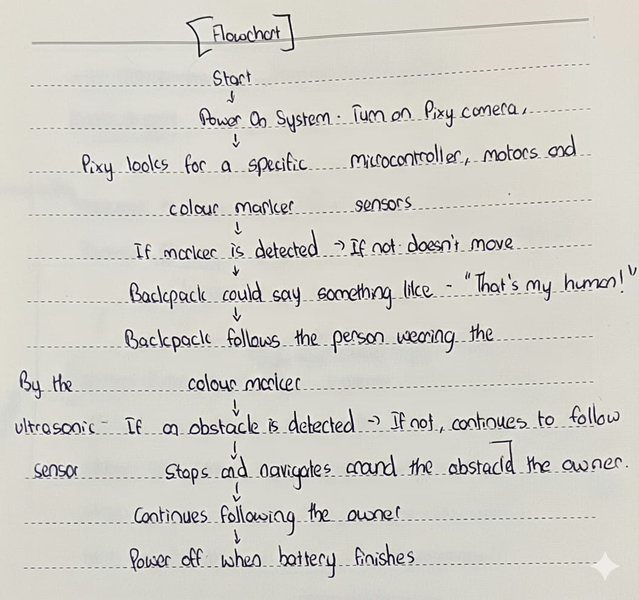 [Flowchart]
Start
↓
Power On System - Turn on Pixy camera,
↓
Pixy looks for a specific microcontroller, motors and
colour marker sensors
↓
If marker is detected → If not: doesn't move
↓
Backpack could say something like - "That's my human!"
↓
Backpack follows the person wearing the
By the colour marker
↓
ultrasonic - If an obstacle is detected → If not, continues to follow
↓
sensor Stops and navigates around the obstacle the owner.
↓
Continues following the owner
↓
Power off when battery finishes